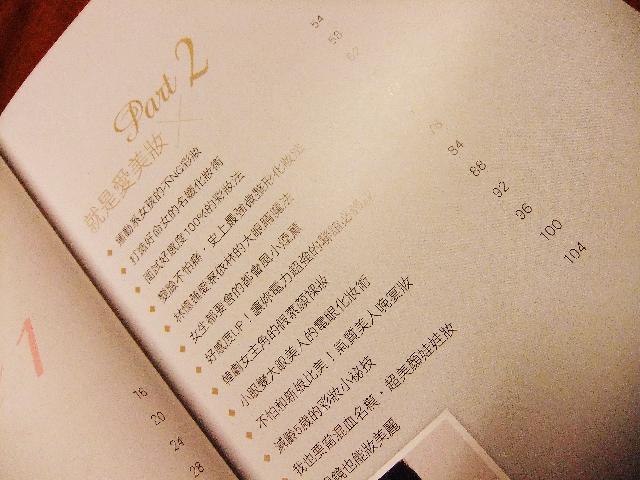 Part 2
就是愛美妝
運動系女孩的不NG彩妝
打造好命女的名媛化妝術
面試好感度100%的彩妝法
變臉不怕痛，史上最強微整形化妝法
林嘉強愛蔡依林的大眼圍魔法
女生都要會的都會風小煙薰
好感度UP！
偶像劇女主角的假素顏裸妝
小眼變大眼美人的電眼化妝術
不怕和新娘比美！氣質美人晚宴妝
減齡5歲的彩妝小秘技
我也要當混血名模，超美顏娃娃妝
鏡也能妝美麗
54
58
62
78
84
88
92
96
100
104
1
16
20
24
28